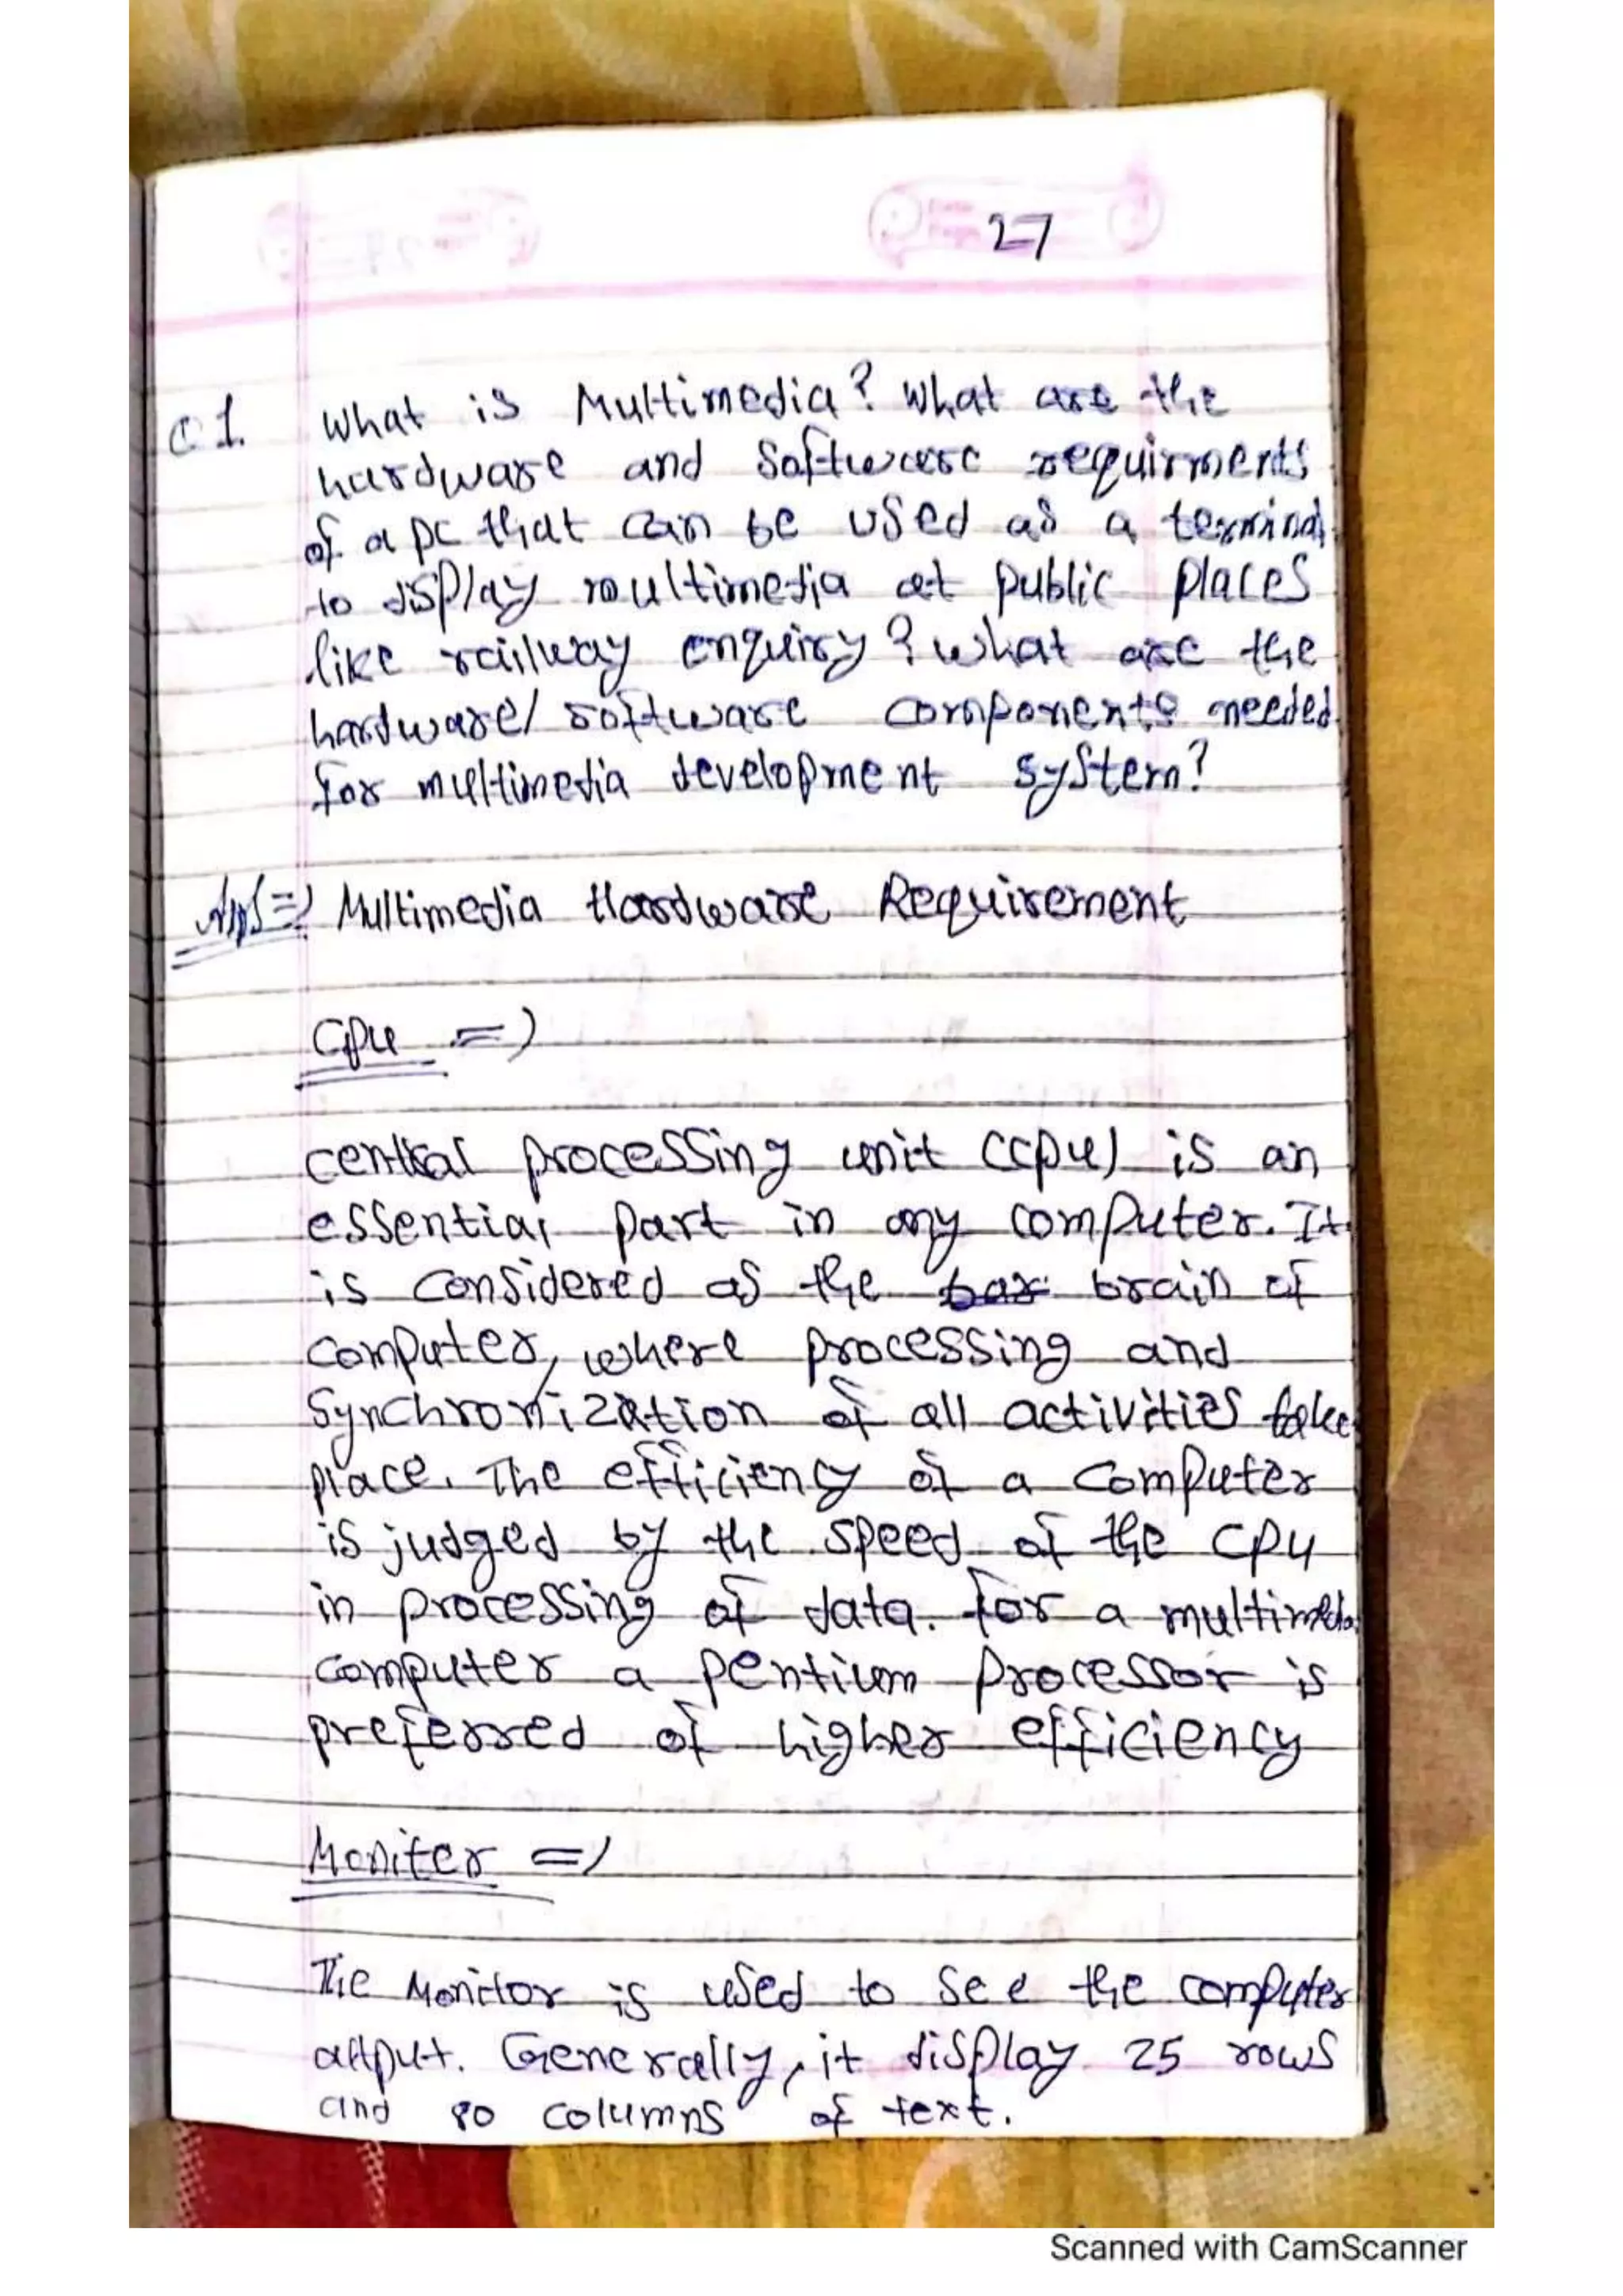 27
Q 1. What is Multimedia? What are the
hardware and Software requirments
of a pc that can be used as a terminal
to display multimedia at public places
like railway enquiry? what are the
hardware/ software components needed
for multimedia development system?
Ans=) Multimedia Hardware Requirement
Cpu =)
central processing unit (cpu) is an
essential part in any computer. It
is considered as the brain of
computer, where processing and
Synchronization of all activities take
place. The efficiency of a computer
is judged by the speed of the cpu
in processing of data. for a multimedia
computer a pentium processor is
preferred of higher efficiency
Moniter =)
The Monitor is used to see the computer
output. Generally, it display 25 rows
and 80 columns of text.
Scanned with CamScanner